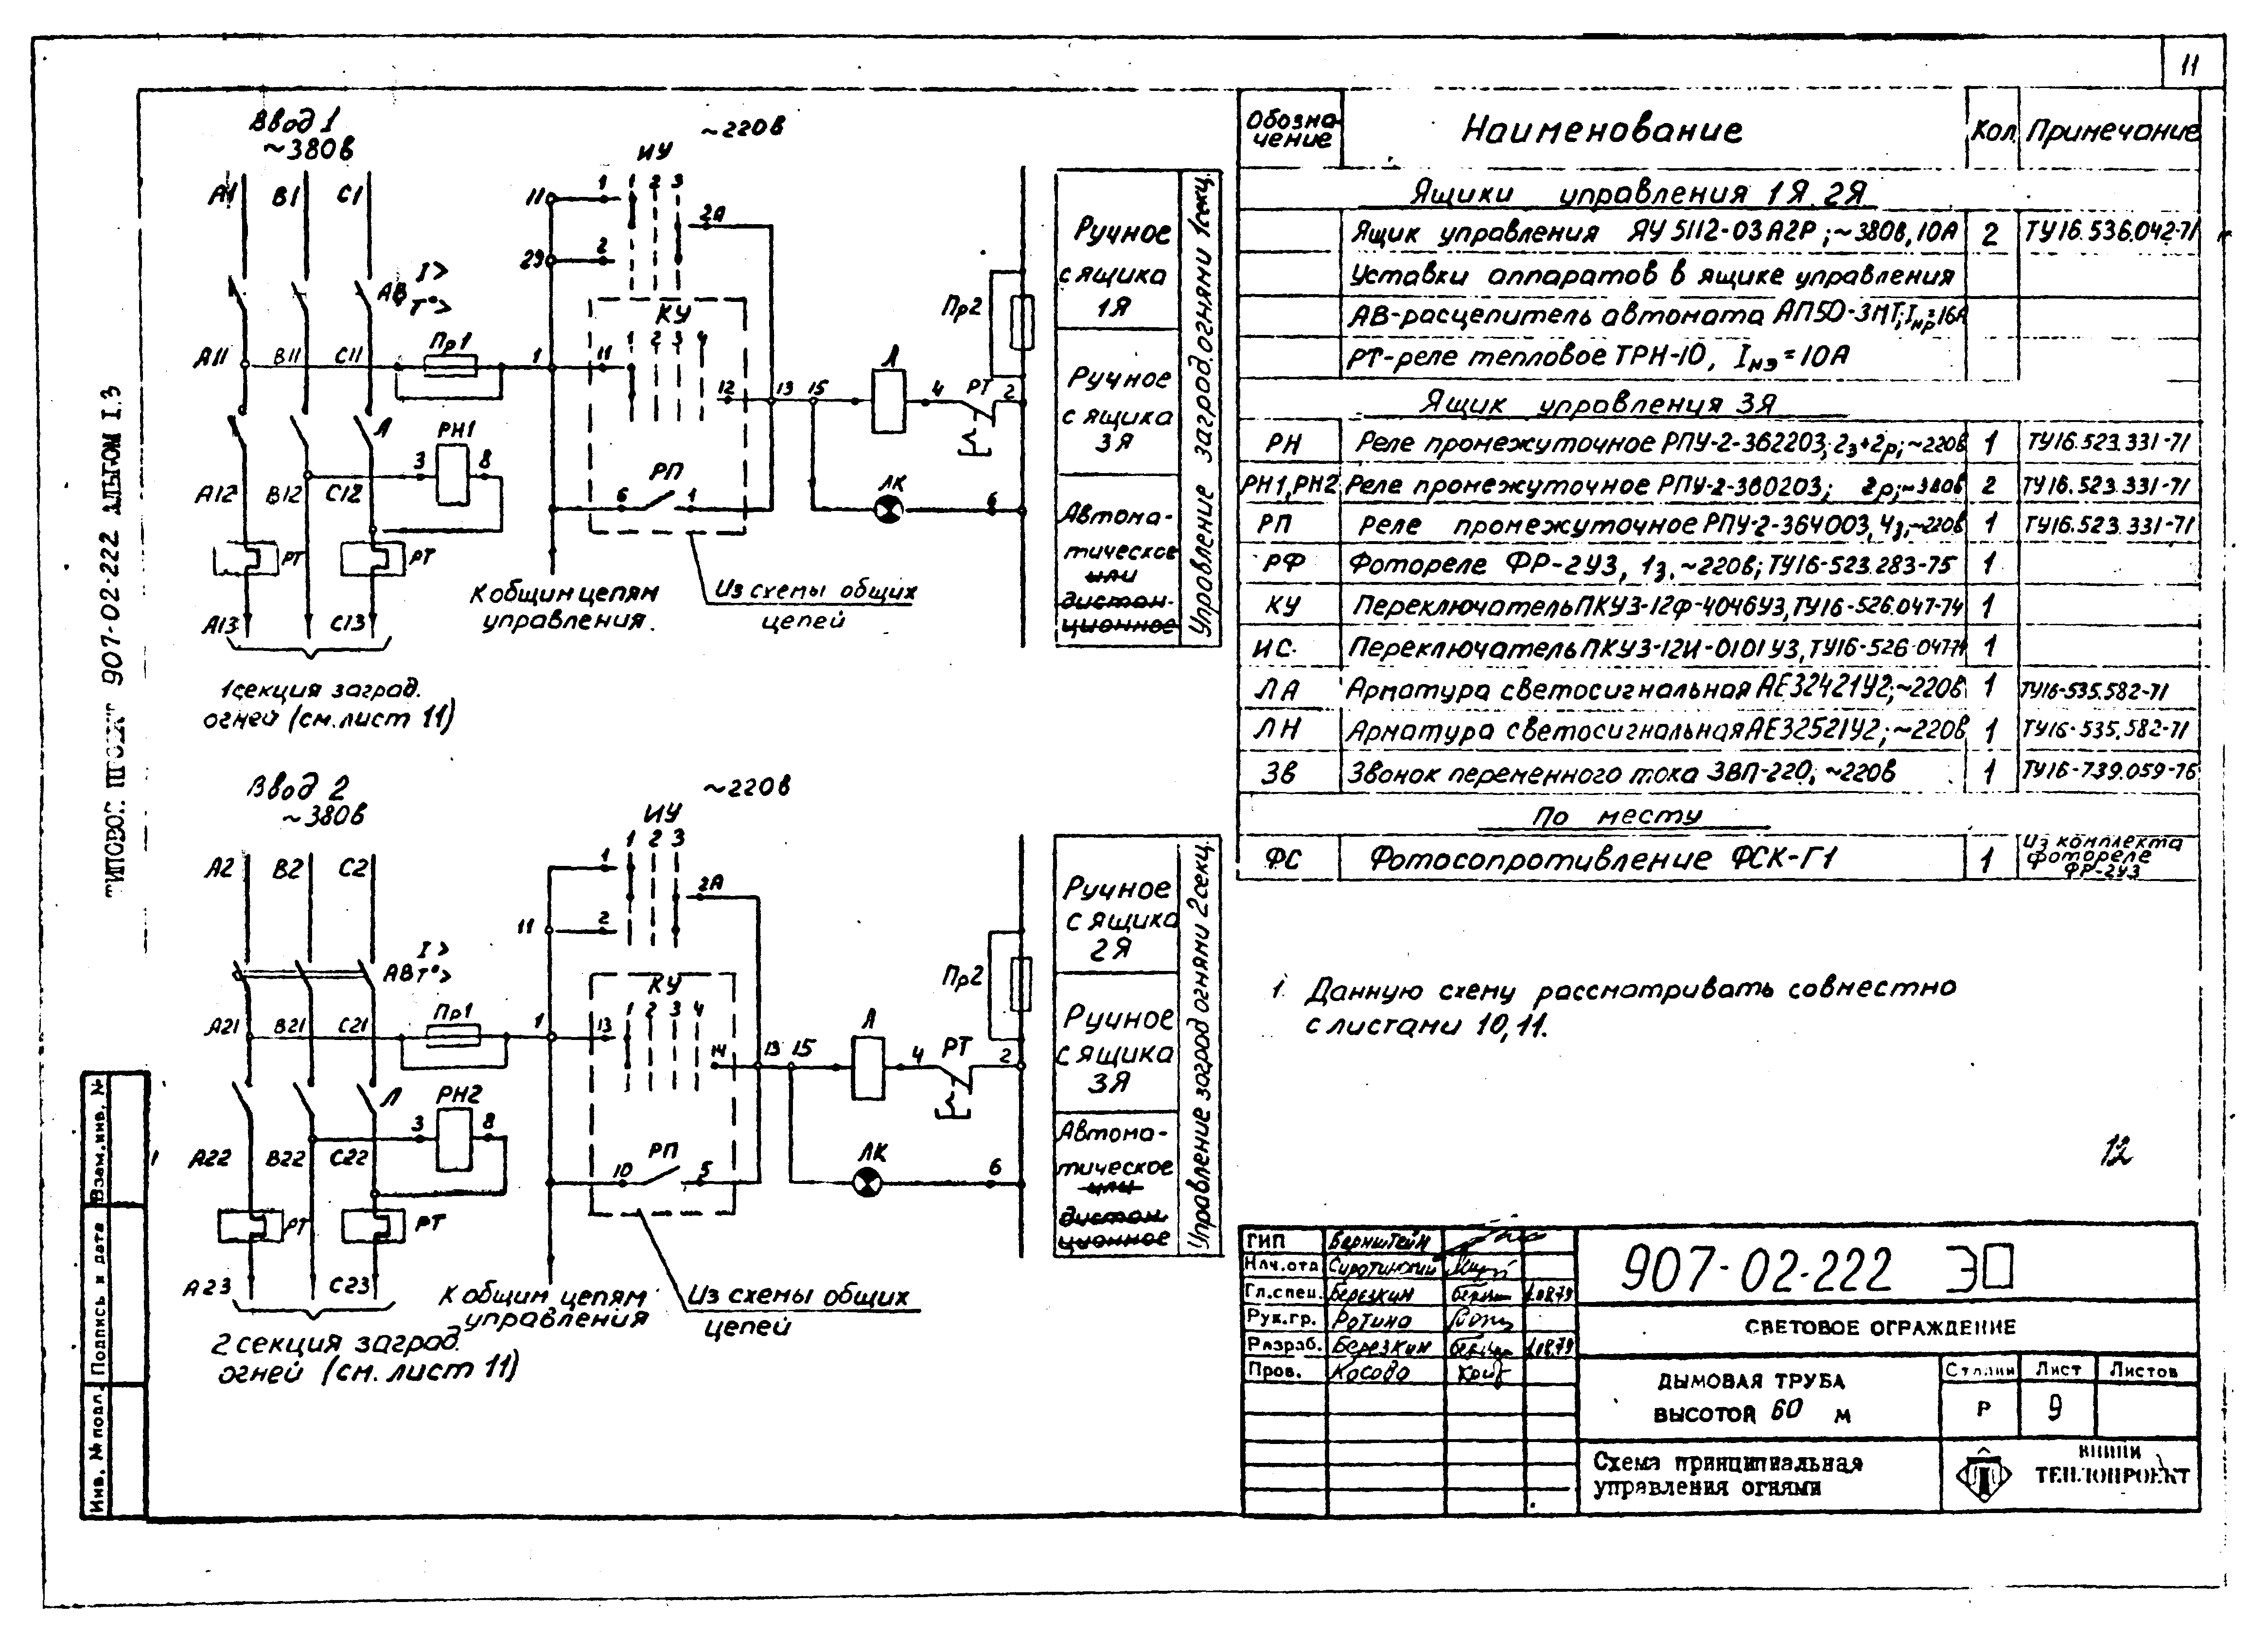 11
ТИПОВОЙ ПРОЕКТ 907-02-222 АЛЬБОМ I.3
Ввод 1
~380в
~220в
ИУ
А1 В1 С1
11 1 1 2 3 2А
29 2
АВ I> Т°>
КУ
Пр1
1 2 3 4
А11 В11 С11 1 11 12 13 15 Л 4 РТ 2
Пр2
Л РН1
3 8
А12 В12 С12
РП
6 1
ЛК 6
РТ РТ
А13 С13
К общим цепям
управления.
Из схемы общих
цепей
1 секция заград.
огней (см. лист 11)
Ручное
с ящика
1Я
Ручное
с ящика
3Я
Автома-
тическое
или
дистан-
ционное
Управление заград. огнями 1 секц.
Ввод 2
~380в
~220в
ИУ
А2 В2 С2
1 1 2 3 2А
11 2
АВ I> Т°>
КУ
Пр1
1 2 3 4
А21 В21 С21 1 13 14 13 15 Л 4 РТ 2
Пр2
Л РН2
3 8
А22 В22 С22
РП
10 5
ЛК 6
РТ РТ
А23 С23
К общим цепям
управления
Из схемы общих
цепей
2 секция заград.
огней (см. лист 11)
Ручное
с ящика
2Я
Ручное
с ящика
3Я
Автома-
тическое
или
дистан-
ционное
Управление заград огнями 2 секц.
Обозна-
чение Наименование Кол. Примечание
Ящики управления 1Я, 2Я
Ящик управления ЯУ 5112-03А2Р; ~380в, 10А 2 ТУ16.536.042-71
Уставки аппаратов в ящике управления
АВ-расцепитель автомата АП50-3МТ; Iнр=16А
РТ-реле тепловое ТРН-10, Iнэ=10А
Ящик управления 3Я
РН Реле промежуточное РПУ-2-362203; 2з+2р; ~220в 1 ТУ16.523.331-71
РН1, РН2 Реле промежуточное РПУ-2-360203; 2р; ~380в 2 ТУ16.523.331-71
РП Реле промежуточное РПУ-2-364003, 4з, ~220в 1 ТУ16.523.331-71
РФ Фотореле ФР-2У3, 1з, ~220в; ТУ16-523.283-75 1
КУ Переключатель ПКУ3-12Ф-4046У3, ТУ16-526.047-74 1
ИС. Переключатель ПКУ3-12И-0101У3, ТУ16-526.047-74 1
ЛА Арматура светосигнальная АЕ32421У2; ~220в 1 ТУ16-535.582-71
ЛН Арматура светосигнальная АЕ32521У2; ~220в 1 ТУ16-535.582-71
Зв Звонок переменного тока ЗВП-220; ~220в 1 ТУ16-739.059-76
По месту
ФС Фотосопротивление ФСК-Г1 1 Из комплекта
фотореле
ФР-2У3
1. Данную схему рассматривать совместно
с листами 10, 11.
12
Взам. инв. №
Подпись и дата
Инв. № подл.
ГИП Бернштейн
Нач. отд Сиротинский
Гл. спец. Березкин 1.08.79
Рук. гр. Ротина
Разраб. Березкин 1.08.79
Пров. Косова
907-02-222 ЭО
СВЕТОВОЕ ОГРАЖДЕНИЕ
ДЫМОВАЯ ТРУБА
ВЫСОТОЙ 60 м
Стадия Лист Листов
Р 9
Схема принципиальная
управления огнями
ВНИПИ
ТЕПЛОПРОЕКТ